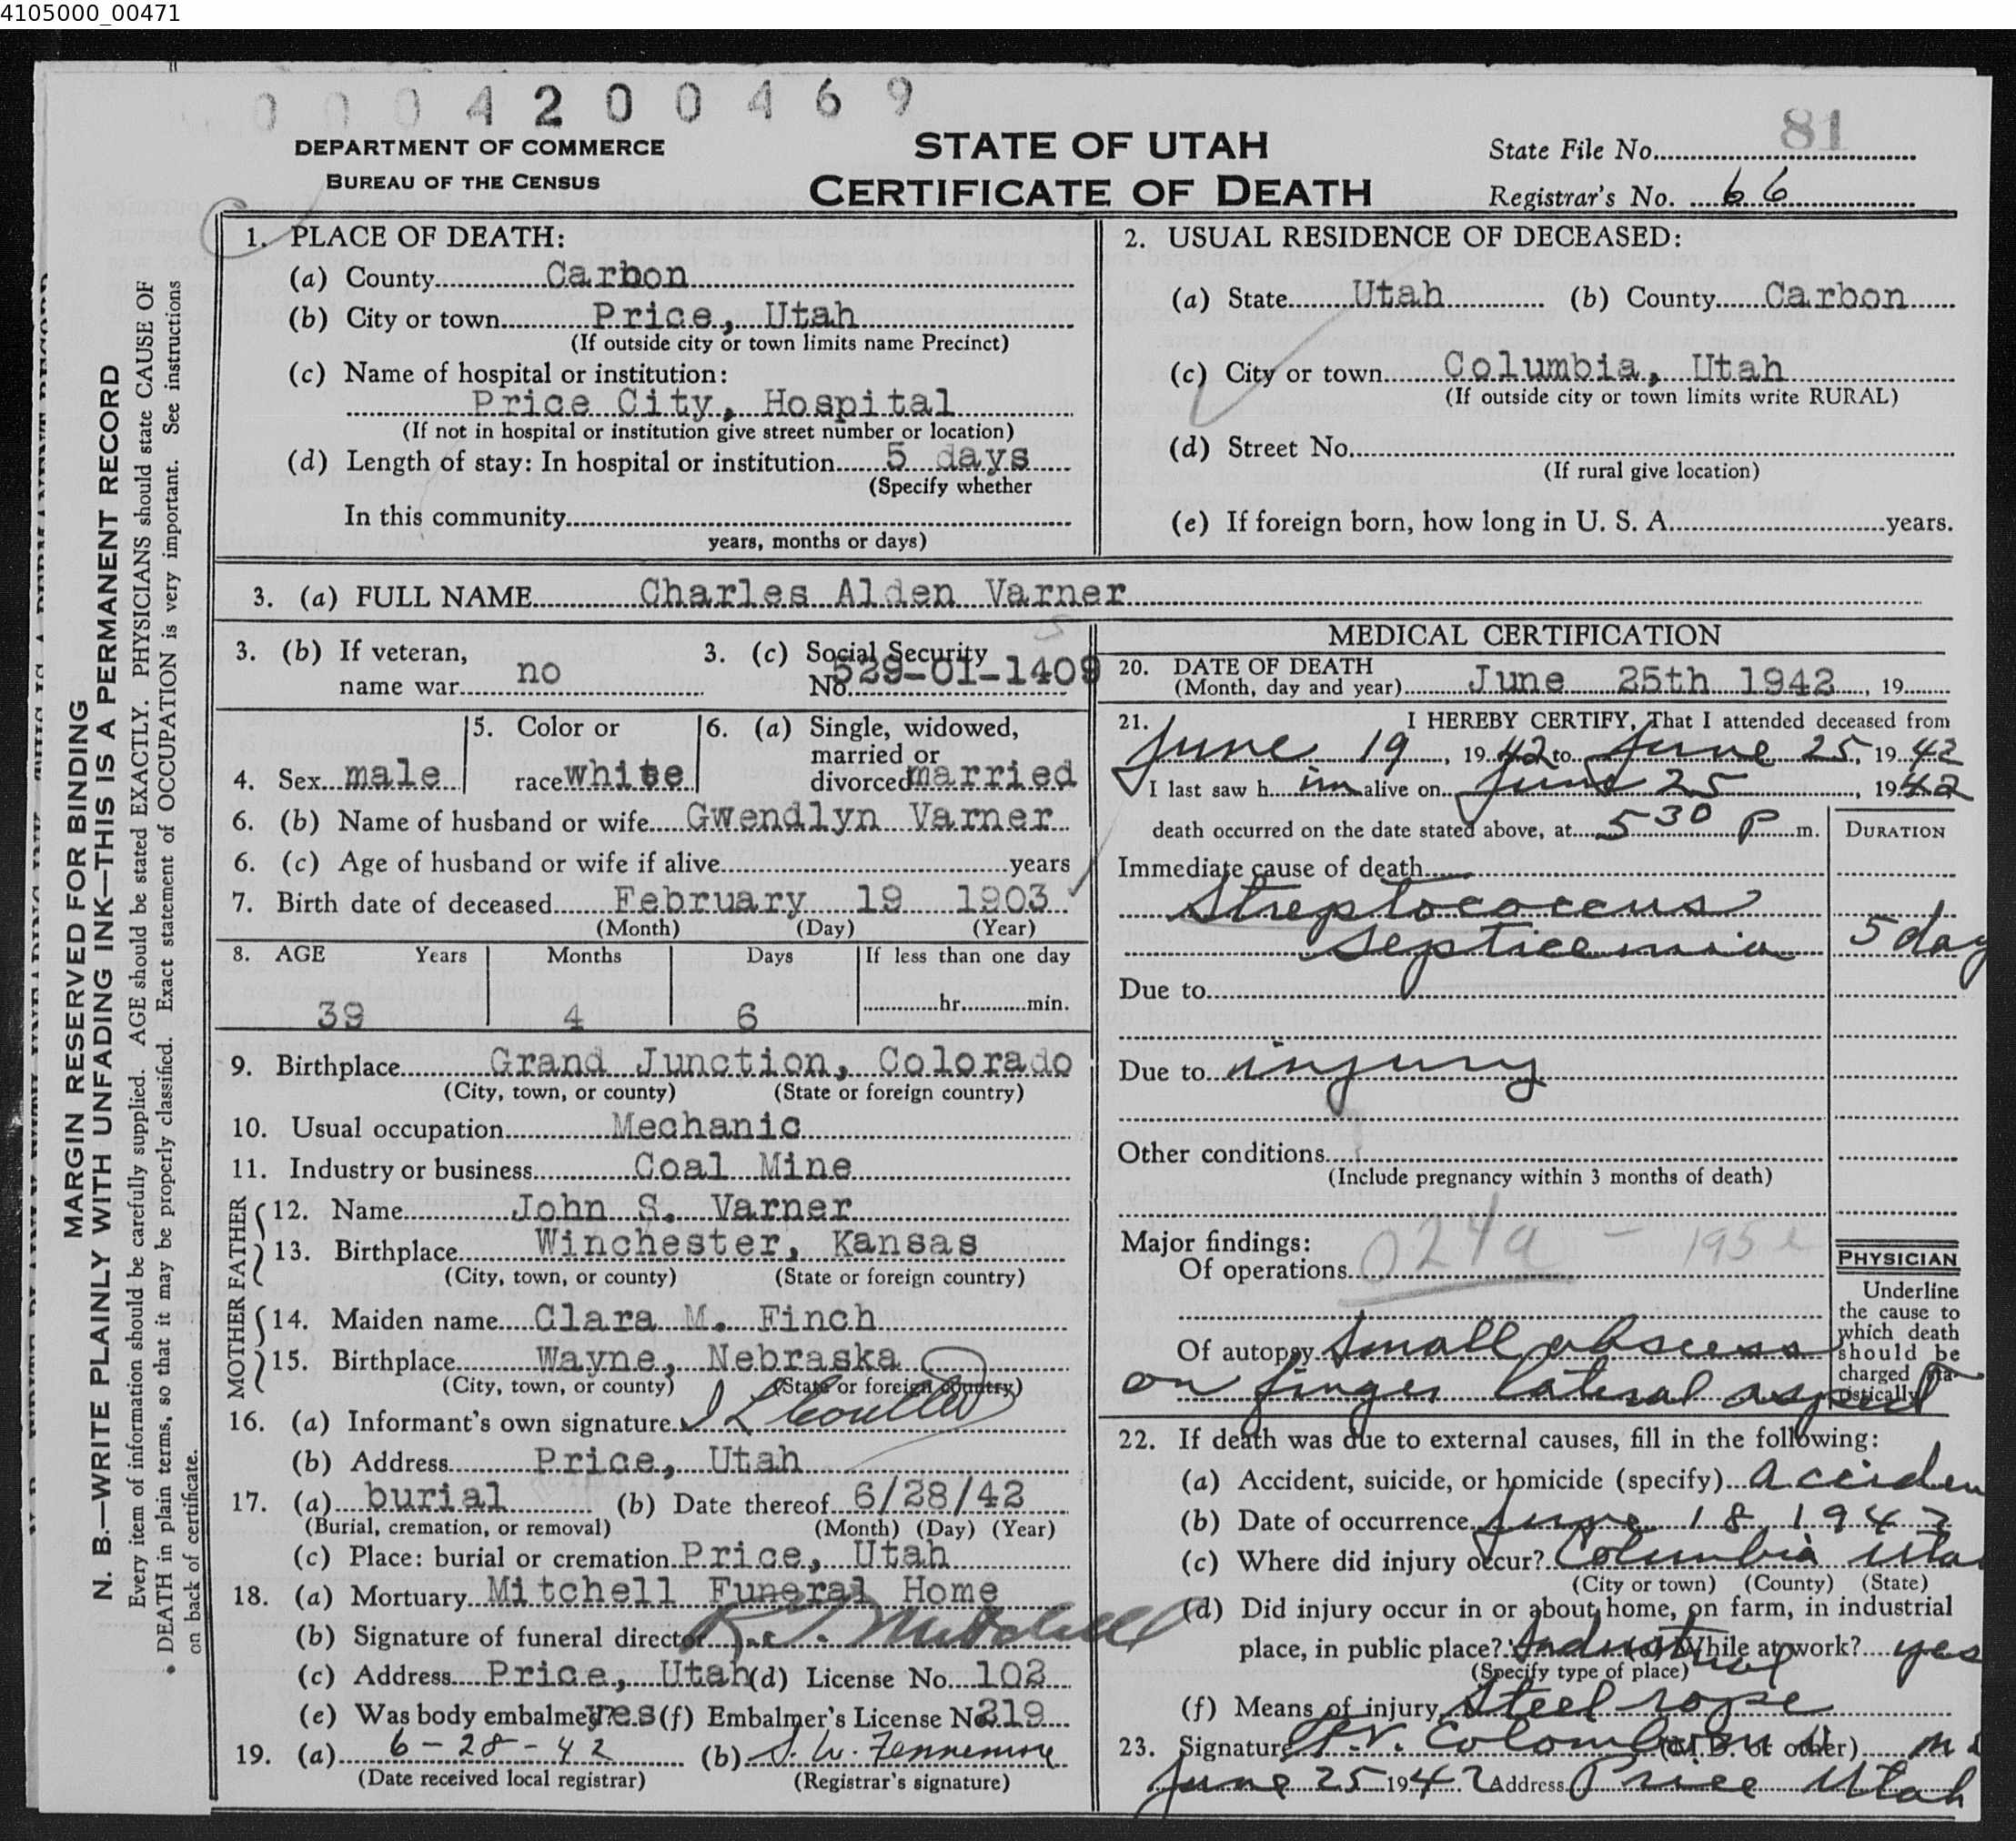 4105000_00471
0 0 0 4 2 0 0 4 6 9
DEPARTMENT OF COMMERCE
BUREAU OF THE CENSUS
STATE OF UTAH
CERTIFICATE OF DEATH
State File No. 81
Registrar's No. 66
MARGIN RESERVED FOR BINDING
N. B.—WRITE PLAINLY WITH UNFADING INK—THIS IS A PERMANENT RECORD
Every item of information should be carefully supplied. AGE should be stated EXACTLY. PHYSICIANS should state CAUSE OF
DEATH in plain terms, so that it may be properly classified. Exact statement of OCCUPATION is very important. See instructions
on back of certificate.
1. PLACE OF DEATH:
(a) County Carbon
(b) City or town Price, Utah
(If outside city or town limits name Precinct)
(c) Name of hospital or institution:
Price City, Hospital
(If not in hospital or institution give street number or location)
(d) Length of stay: In hospital or institution 5 days
(Specify whether
In this community
years, months or days)
2. USUAL RESIDENCE OF DECEASED:
(a) State Utah (b) County Carbon
(c) City or town Columbia, Utah
(If outside city or town limits write RURAL)
(d) Street No.
(If rural give location)
(e) If foreign born, how long in U. S. A. years.
3. (a) FULL NAME Charles Alden Varner
3. (b) If veteran, name war no
3. (c) Social Security No. 529-01-1409
4. Sex male
5. Color or race white
6. (a) Single, widowed, married or divorced married
6. (b) Name of husband or wife Gwendlyn Varner
6. (c) Age of husband or wife if alive years
7. Birth date of deceased February 19 1903
(Month) (Day) (Year)
8. AGE Years Months Days If less than one day
39 4 6 hr. min.
9. Birthplace Grand Junction, Colorado
(City, town, or county) (State or foreign country)
10. Usual occupation Mechanic
11. Industry or business Coal Mine
FATHER
12. Name John S. Varner
13. Birthplace Winchester, Kansas
(City, town, or county) (State or foreign country)
MOTHER
14. Maiden name Clara M. Finch
15. Birthplace Wayne, Nebraska
(City, town, or county) (State or foreign country)
16. (a) Informant's own signature
(b) Address Price, Utah
17. (a) burial (b) Date thereof 6/28/42
(Burial, cremation, or removal) (Month) (Day) (Year)
(c) Place: burial or cremation Price, Utah
18. (a) Mortuary Mitchell Funeral Home
(b) Signature of funeral director Mitchell
(c) Address Price, Utah (d) License No. 102
(e) Was body embalmed? yes (f) Embalmer's License No. 219
19. (a) 6-28-42 (b) S. W.
(Date received local registrar) (Registrar's signature)
MEDICAL CERTIFICATION
20. DATE OF DEATH
(Month, day and year) June 25th 1942, 19
21. I HEREBY CERTIFY, That I attended deceased from
June 19, 1942 to June 25, 1942
I last saw him alive on June 25, 1942
death occurred on the date stated above, at 5 30 P m.
DURATION
Immediate cause of death
Streptococcus
septicemia 5 day
Due to
Due to injury
Other conditions
(Include pregnancy within 3 months of death)
Major findings:
Of operations
024a - 195
Of autopsy Small abscess
on finger lateral aspect
PHYSICIAN
Underline
the cause to
which death
should be
charged sta-
tistically
22. If death was due to external causes, fill in the following:
(a) Accident, suicide, or homicide (specify) acciden
(b) Date of occurrence June 18 1942
(c) Where did injury occur? Columbia Utah
(City or town) (County) (State)
(d) Did injury occur in or about home, on farm, in industrial
place, in public place? Industrial While at work? yes
(Specify type of place)
(f) Means of injury Steel rope
23. Signature Colombo (M.D. or other) M D
June 25 1942 Address Price Utah